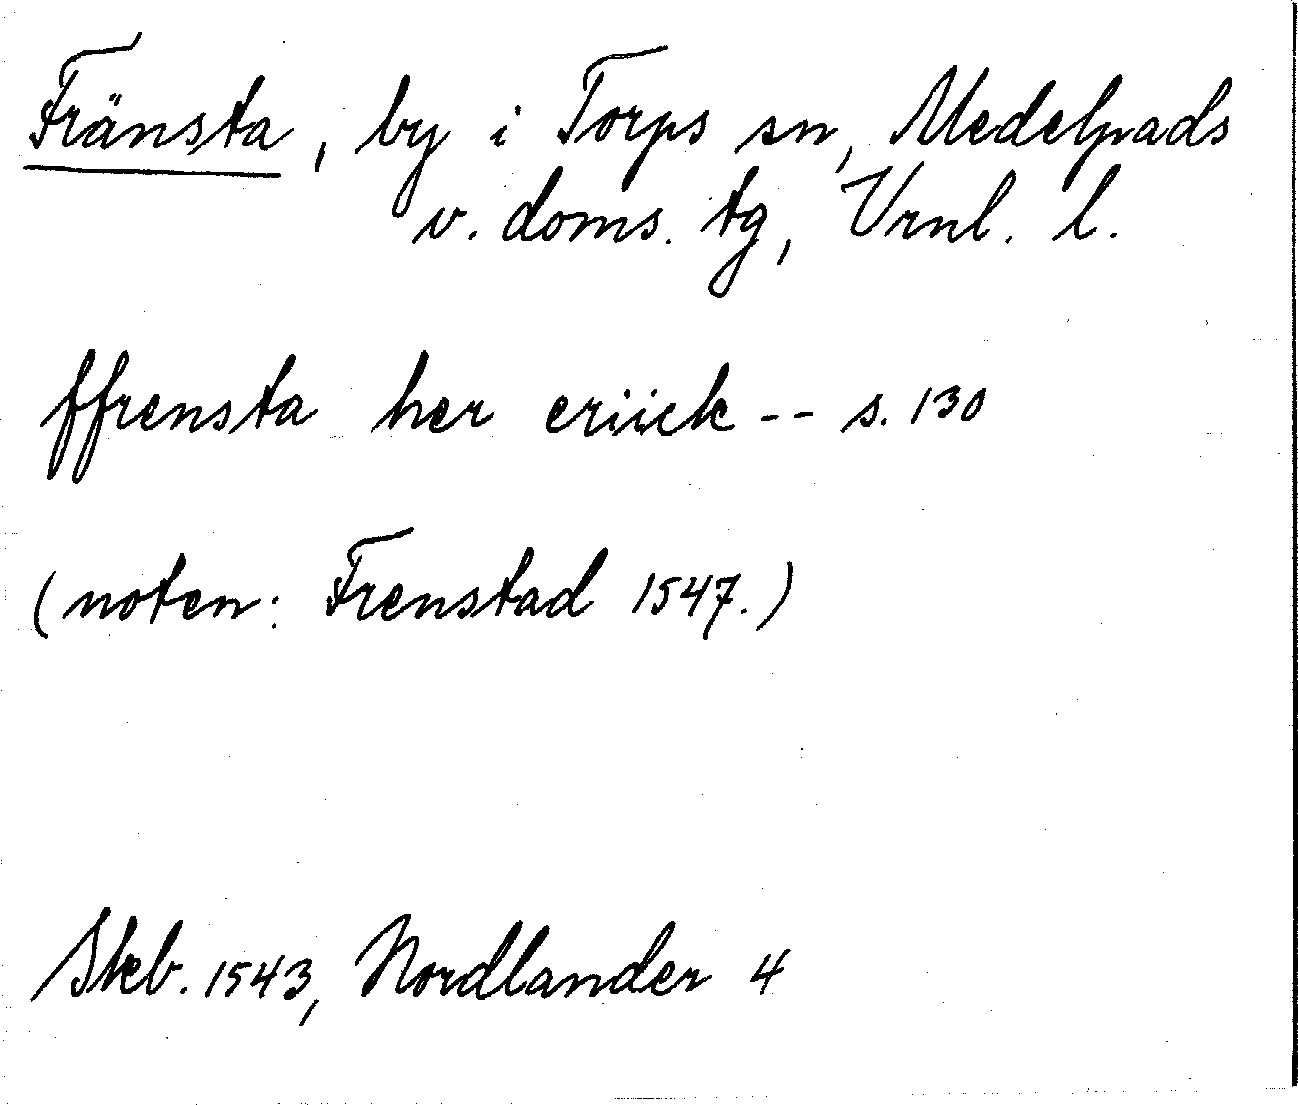 Fränsta, by i Torps sn, Medelpads
v. doms. tg, Vrnl. l.
ffrensta her eriick -- s. 130
(noten: Frenstad 1547.)
Skb. 1543, Nordlander 4